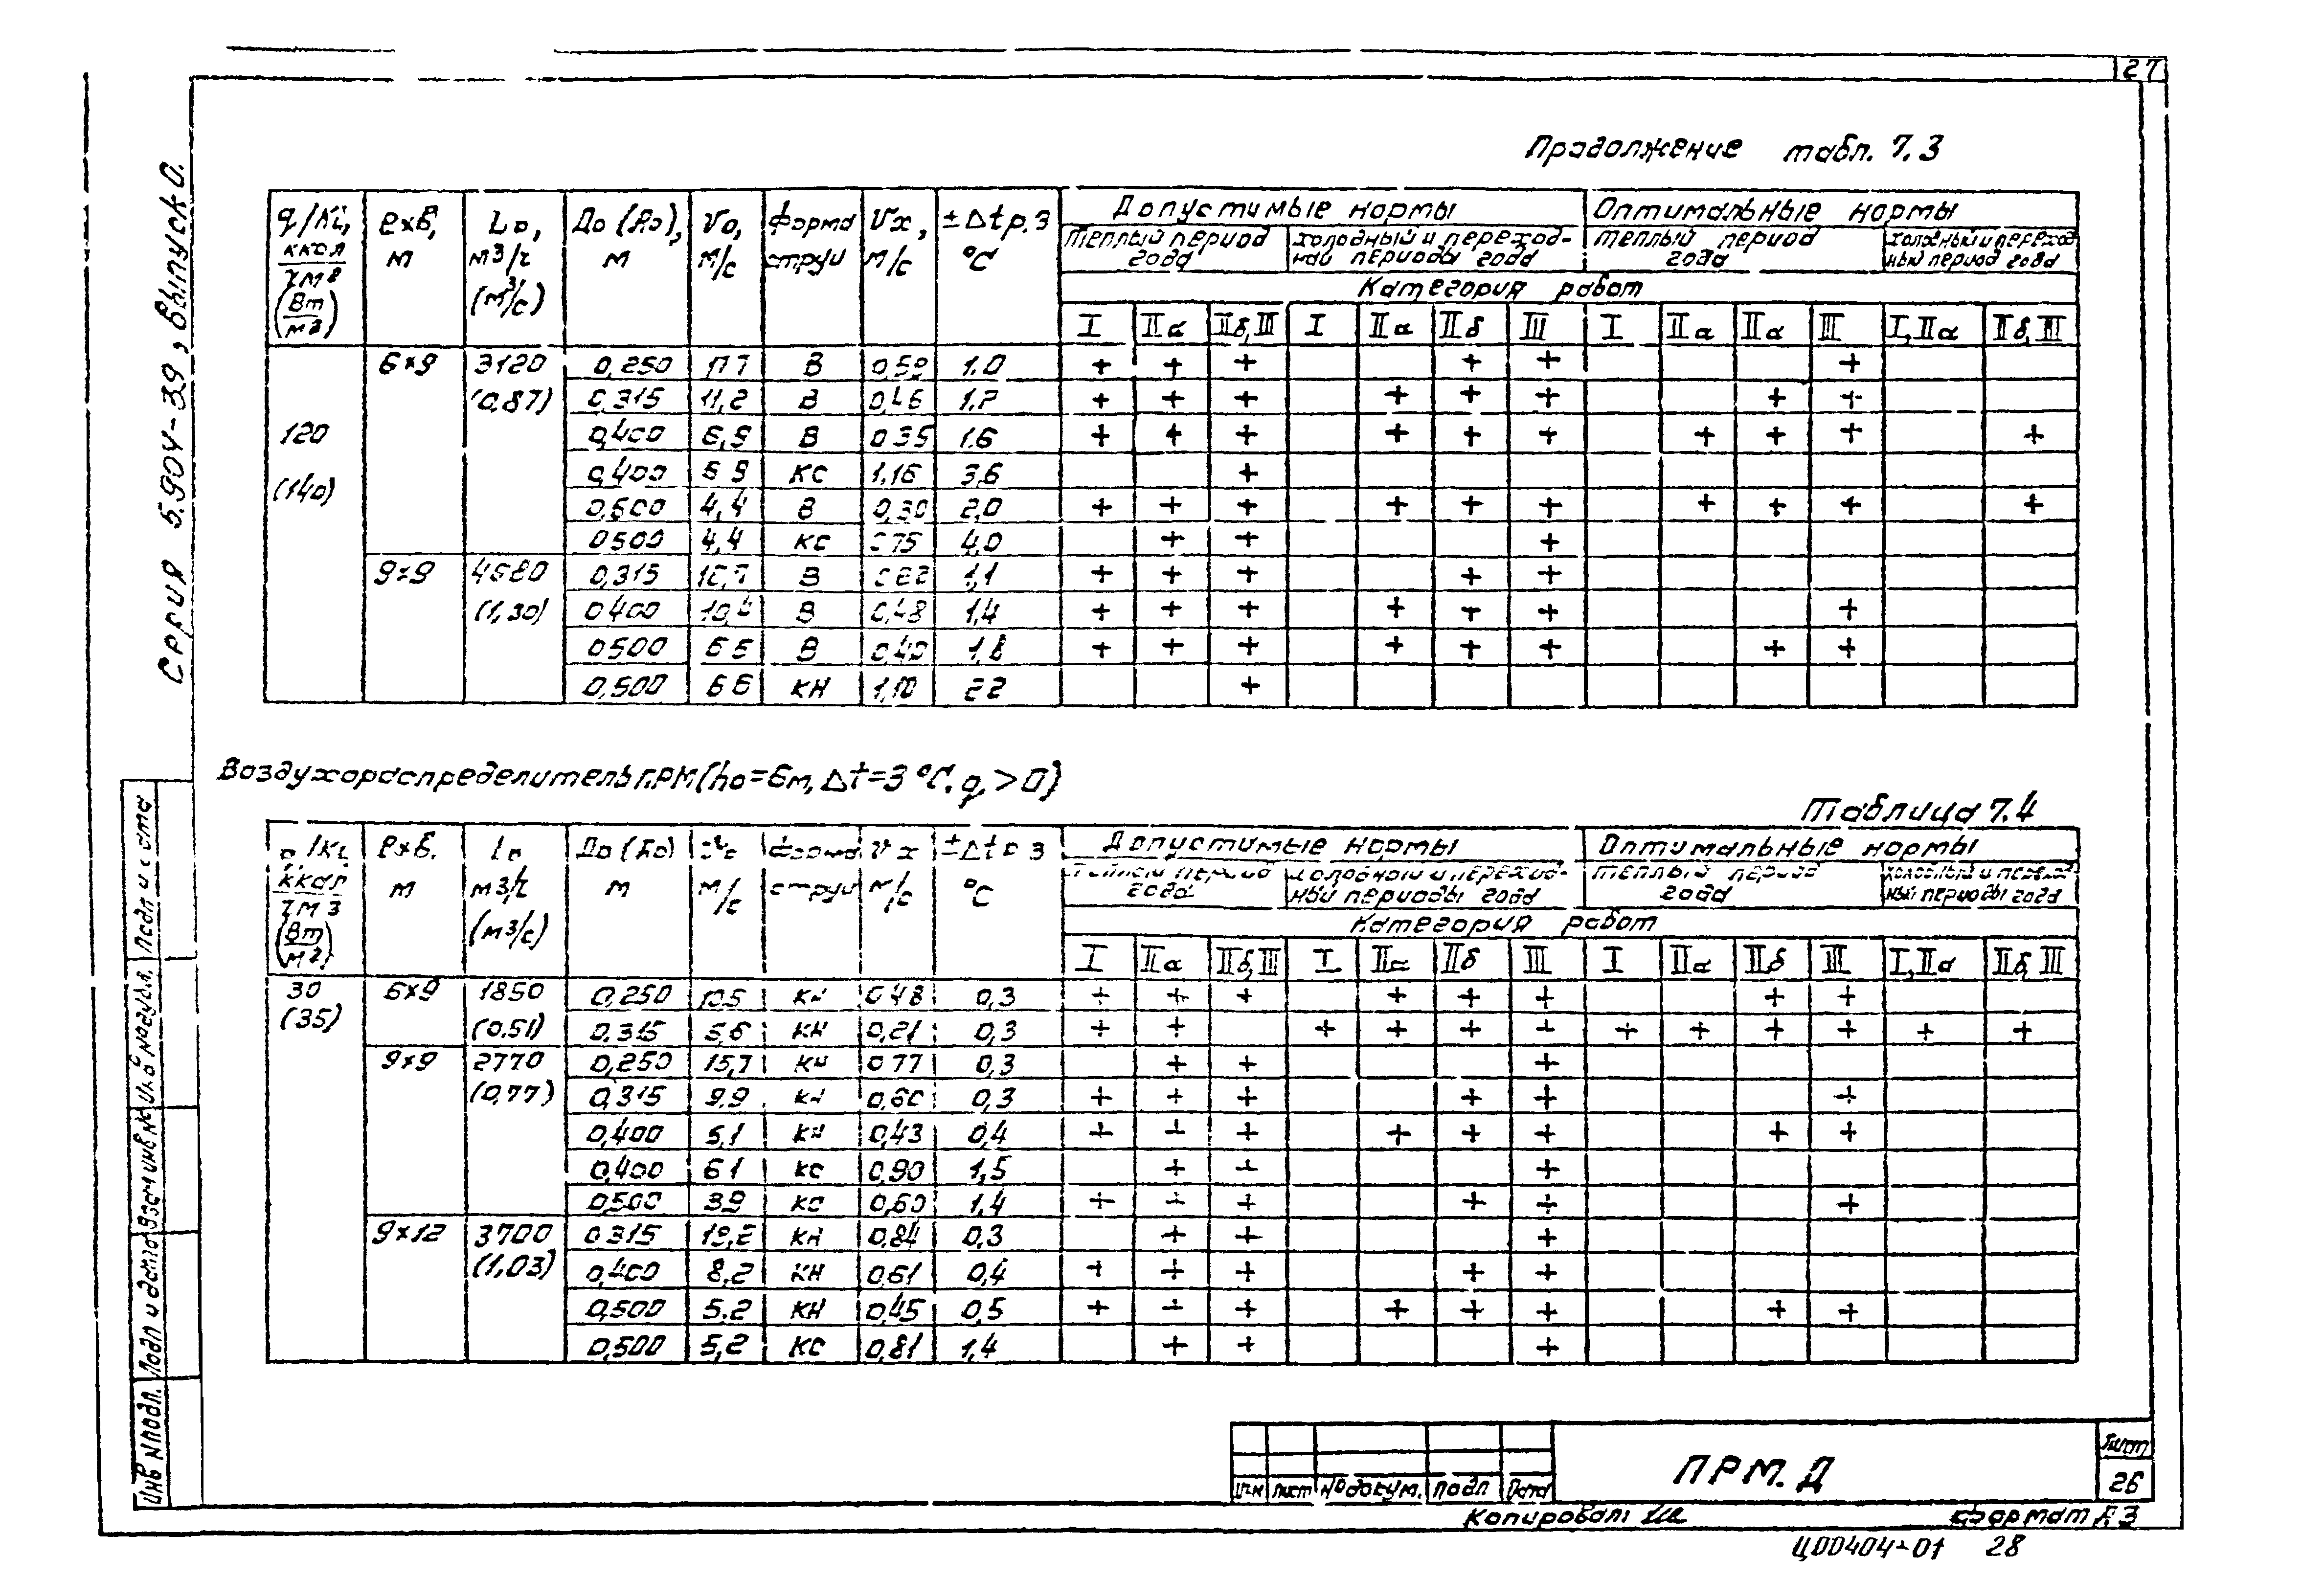 27
Серия 5.904-39, Выпуск 0.
Продолжение табл. 7.3
q/Кц, ккал/чм² (Вт/м²) | ℓхв, м | Lо, м3/ч (м³/с) | До (Ао), м | Vо, м/с | форма струи | Vх, м/с | ±Δtр.з °С | Допустимые нормы | Оптимальные нормы
Теплый период года | холодный и переходный периоды года | теплый период года | холодный и переходный период года
Категория работ
I | IIа | IIб, III | I | IIа | IIб | III | I | IIа | IIа | III | I, IIа | IIб, III
120 (140) | 6х9 | 3120 (0,87) | 0,250 | В | 0,59 | 1.0 | + | + | + | | | + | + | | | | + | |
0,315 | 11,2 | В | 0,46 | 1.2 | + | + | + | | + | + | + | | | + | + | |
0,400 | 6,9 | В | 0,35 | 1.6 | + | + | + | | + | + | + | | + | + | + | | +
0,400 | 6 9 | КС | 1,16 | 3,6 | | | + | | | | | | | | | |
0,500 | 4,4 | В | 0,30 | 2.0 | + | + | + | | + | + | + | | + | + | + | | +
0500 | 4,4 | КС | 75 | 4.0 | | + | + | | | | + | | | | | |
9х9 | 4680 (1,30) | 0,315 | В | 1,1 | + | + | + | | | + | + | | | | | |
0400 | 10,4 | В | 0,48 | 1,4 | + | + | + | | + | + | + | | | | + | |
0500 | 6 6 | В | 0,40 | 1,8 | + | + | + | | + | + | + | | | + | + | |
0,500 | 6 6 | КН | 1,10 | 22 | | | + | | | | | | | | | |
Воздухораспределитель ПРМ (hо=6м, Δt=3°С, q>0)
Таблица 7.4
q/Кц ккал/чм3 (Вт/м2) | ℓхв. м | Lо м3/ч (м3/с) | До (Ао) м | Vо м/с | форма струи | Vх м/с | ±Δtр.з °С | Допустимые нормы | Оптимальные нормы
Теплый период года | холодный и переходный периоды года | теплый период года | холодный и переходный периоды года
Категория работ
I | IIа | IIб, III | I | IIа | IIб | III | I | IIа | IIб | III | I, IIа | IIб, III
30 (35) | 6х9 | 1850 (0,51) | 0,250 | КН | 0,48 | 0,3 | + | + | + | | + | + | + | | | + | + | |
0,315 | 5,6 | КН | 0,21 | 0,3 | + | + | | + | + | + | + | + | + | + | + | + | +
9х9 | 2770 (0,77) | 0,250 | 15,7 | КН | 0 77 | 0,3 | | + | + | | | | + | | | | | |
0,315 | 9,9 | КН | 0,60 | 0,3 | + | + | + | | | + | + | | | | + | |
0,400 | КН | 0,43 | 0,4 | + | + | + | | + | + | + | | | + | + | |
0,400 | 6 1 | КС | 0,90 | 1,5 | | + | + | | | | + | | | | | |
0,500 | 3,9 | КС | 0,60 | 1,4 | + | + | + | | | + | + | | | | + | |
9х12 | 3700 (1,03) | 0315 | КН | 0,84 | 0,3 | | + | + | | | | + | | | | | |
0,400 | 8,2 | КН | 0,61 | 0,4 | + | + | + | | | + | + | | | | | |
0,500 | 5.2 | КН | 0,45 | 0,5 | + | + | + | | + | + | + | | | + | + | |
0,500 | 5,2 | КС | 0,81 | 1,4 | | + | + | | | | + | | | | | |
Инв N подл. | Подп и дата | Взам инв N | Инв N дубл. | Подп и дата
Изм | Лист | № докум. | Подп | Дата
ПРМ. Д
Лист
26
Копировал
Формат А3
Ц00404-01 28